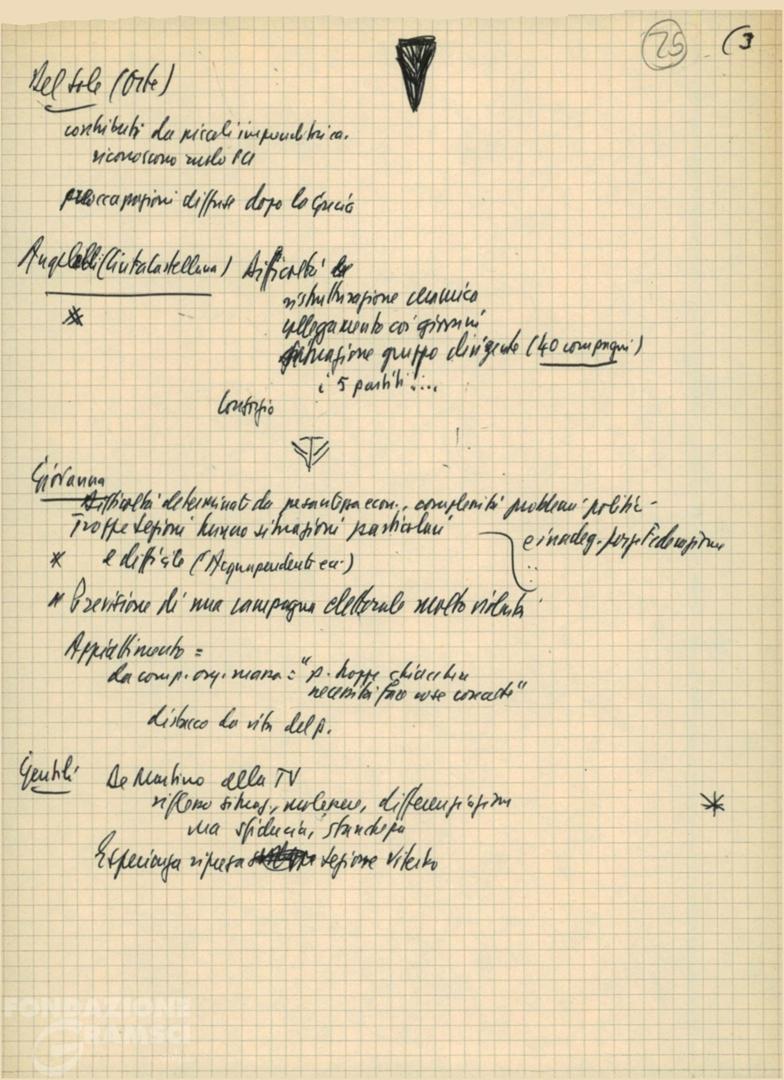 25 (3
Del Sole (Orte)
contributi da piccoli imprenditri ca.
riconoscono ruolo PCI
preoccupazioni diffuse dopo la Grecia
Angelelli (Civitacastellana) Difficoltà
ristrutturazione ceramica
collegamento coi giovani
situazione gruppo dirigente (40 compagni)
i 5 partiti ....
Consorzio
Giovanna
Difficoltà determinat da pesantezza econ., complessità problemi politic -
Troppe sezioni hanno situazioni particolari
e inadeg. forze Federazione
* e difficile (Acquapendente ecc.)
* Previsione di una campagna elettorale molto violenta
Appiattimento =
da comp. org. massa = "p. troppe chiacchiere
necessità fare cose concrete"
distacco da vita del p.
Gentili De Martino alla TV
riflesso situaz., malessere, differenziazioni
ma sfiducia, stanchezza
Esperienza ripresa sezione Viterbo
FONDAZIONE
GRAMSCI